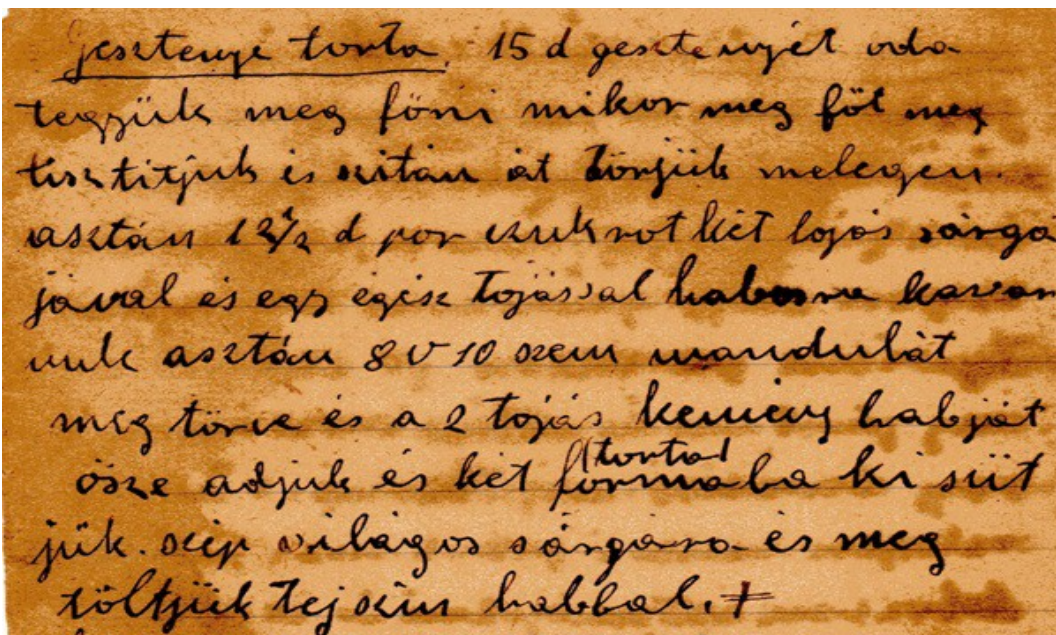 gesztenye torta, 15 d gesztenyét oda
tegyük meg főni mikor meg főt meg
tisztitjuk és szitán át törjük melegen.
asztán 12 1/2 d por czukrot két tojás sárgá
jával és egy égisz tojással habosra kavar
unk asztán 8 v 10 szem mandulát
meg törve és a 2 tojás kemény habját
ösze adjuk és két (torta)
formába ki süt
jük. szép világos sárgára és meg
töltjük tejszin habbal. ‡